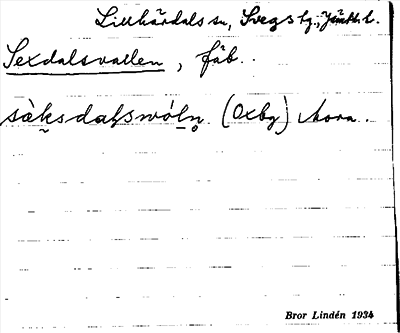 Lillhärdals sn, Svegs tg., Jämtl. l.
Sexdalsvallen, fäb..
sàksdaḷswól̠n̥. (Oxby) Mora.
Bror Lindén 1934